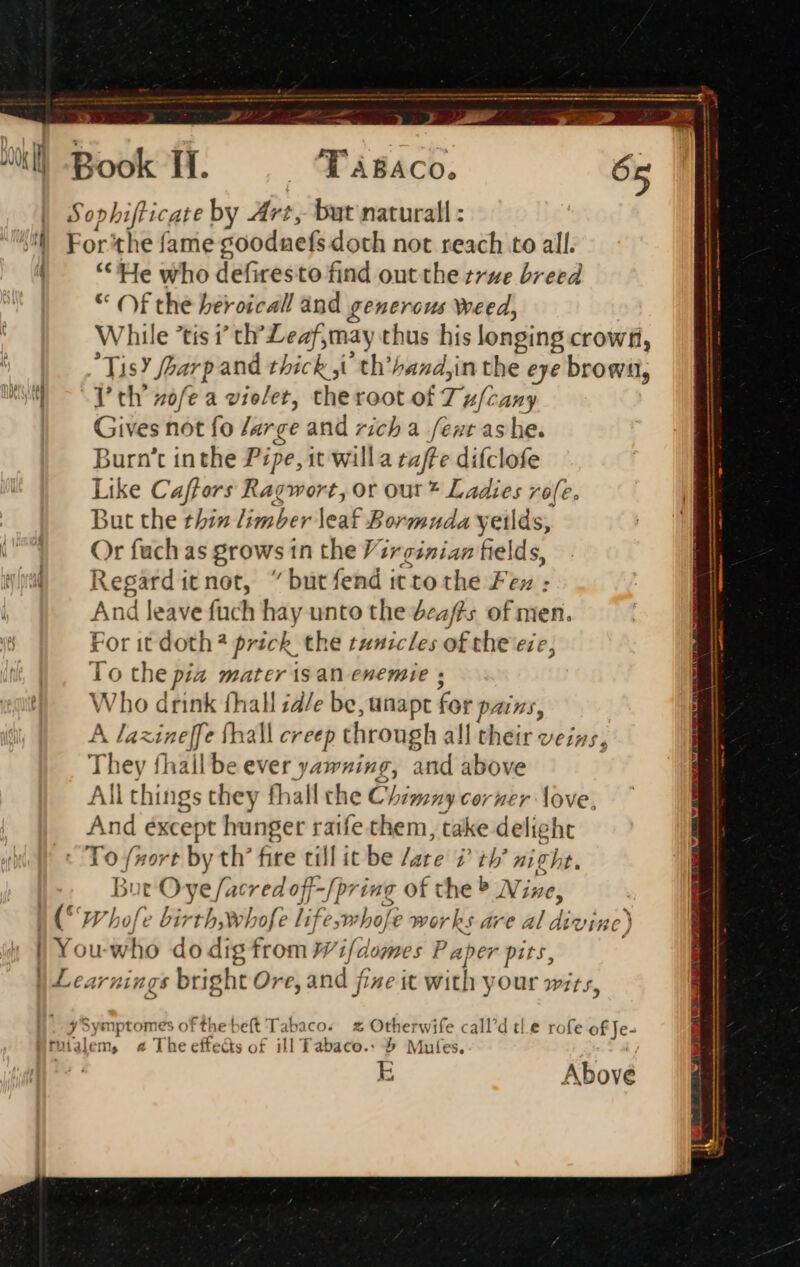 Book II. TABACO. 65
Sophiſticate by Art, but naturall:
For the ſame goodneſs doth not reach to all.
“He who deſires to find out the true breed
“Of the heroicall and generous weed,
While 'tis i' th' Leaf, may thus his longing crown,
'Tis y ſharp and thick i' th' hand, in the eye brown,
I' th' noſe a violet, the root of Tuſcany
Gives not ſo large and rich a ſent as he.
Burn't in the Pipe, it will a taſte diſcloſe
Like Caſtors Ragwort, or our z Ladies roſe.
But the thin limber leaf Bormuda yeilds,
Or ſuch as grows in the Virginian fields,
Regard it not, but ſend it to the Fen:
And leave ſuch hay unto the beaſts of men.
For it doth a prick the tunicles of the eie,
To the pia mater is an enemie;
Who drink ſhall idle be, unapt for pains,
A lazineſſe ſhall creep through all their veins,
They ſhall be ever yawning, and above
All things they ſhall the Chimny corner love.
And except hunger raiſe them, take delight
To ſnort by th' fire till it be late i' th' night.
But O ye ſacred off-ſpring of the b Nine,
(“Whoſe birth, whoſe life, whoſe works are al divine)
You who do dig from Wiſdomes Paper pits,
Learnings bright Ore, and fine it with your wits,
y Symptomes of the beſt Tabaco. z Otherwiſe call'd the roſe of Je-
ruſalem, a The effects of ill Tabaco. b Muſes.
E Above